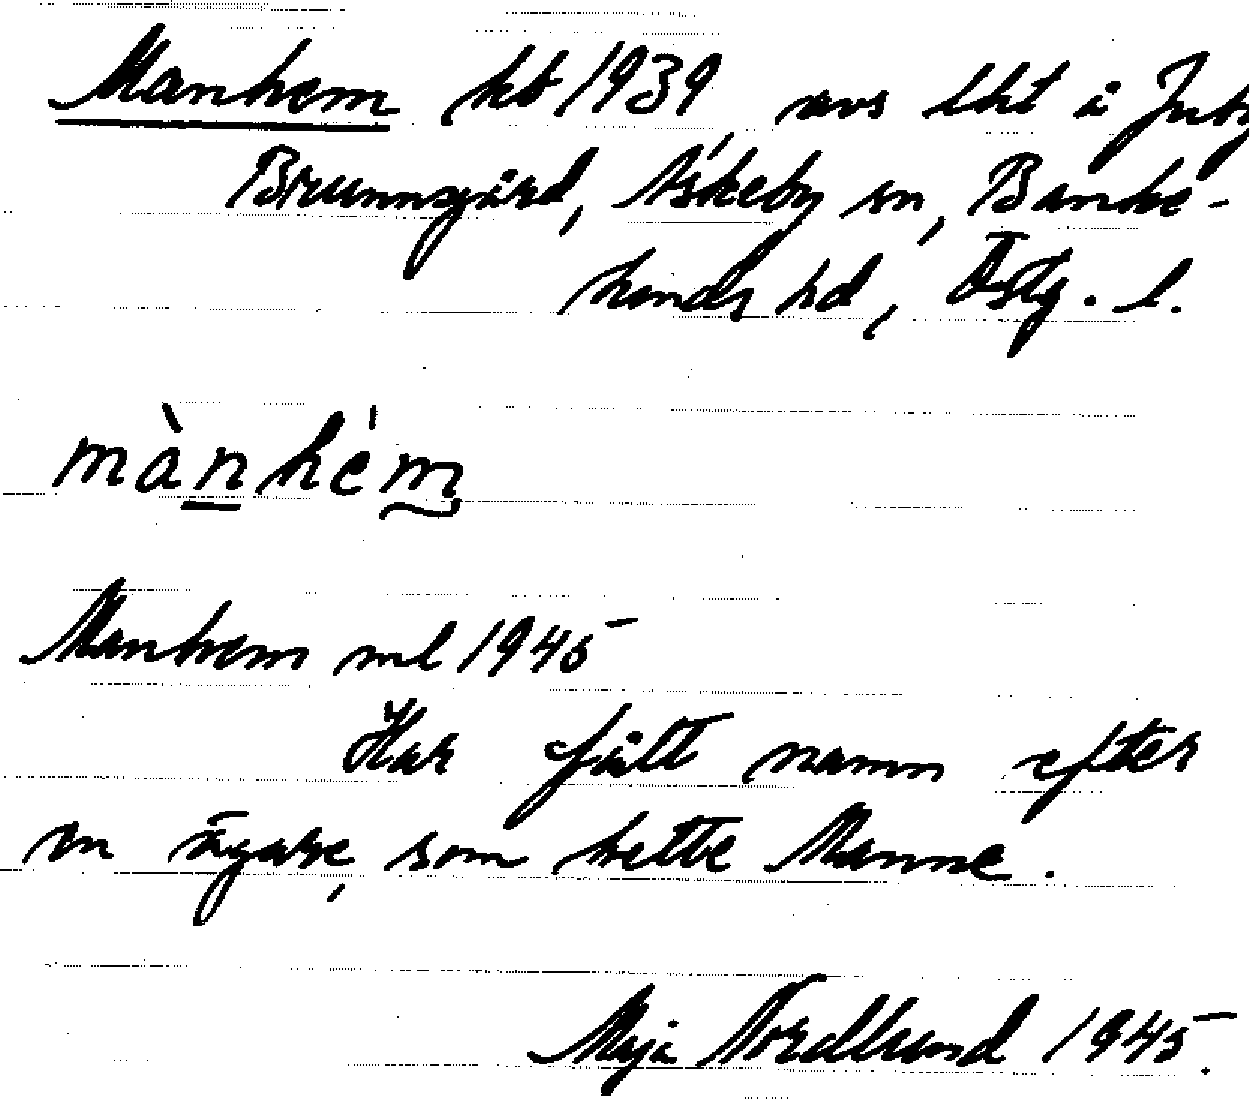 Manhem kb 1939, avs lht å
Brunnsgård, Askeby sn, Banke-
kinds hd, Östg. l.
mànhém
Manhem ml 1945
Har fått namn efter
en ägare, som hette Manne.
Maja Nordlund 1945.